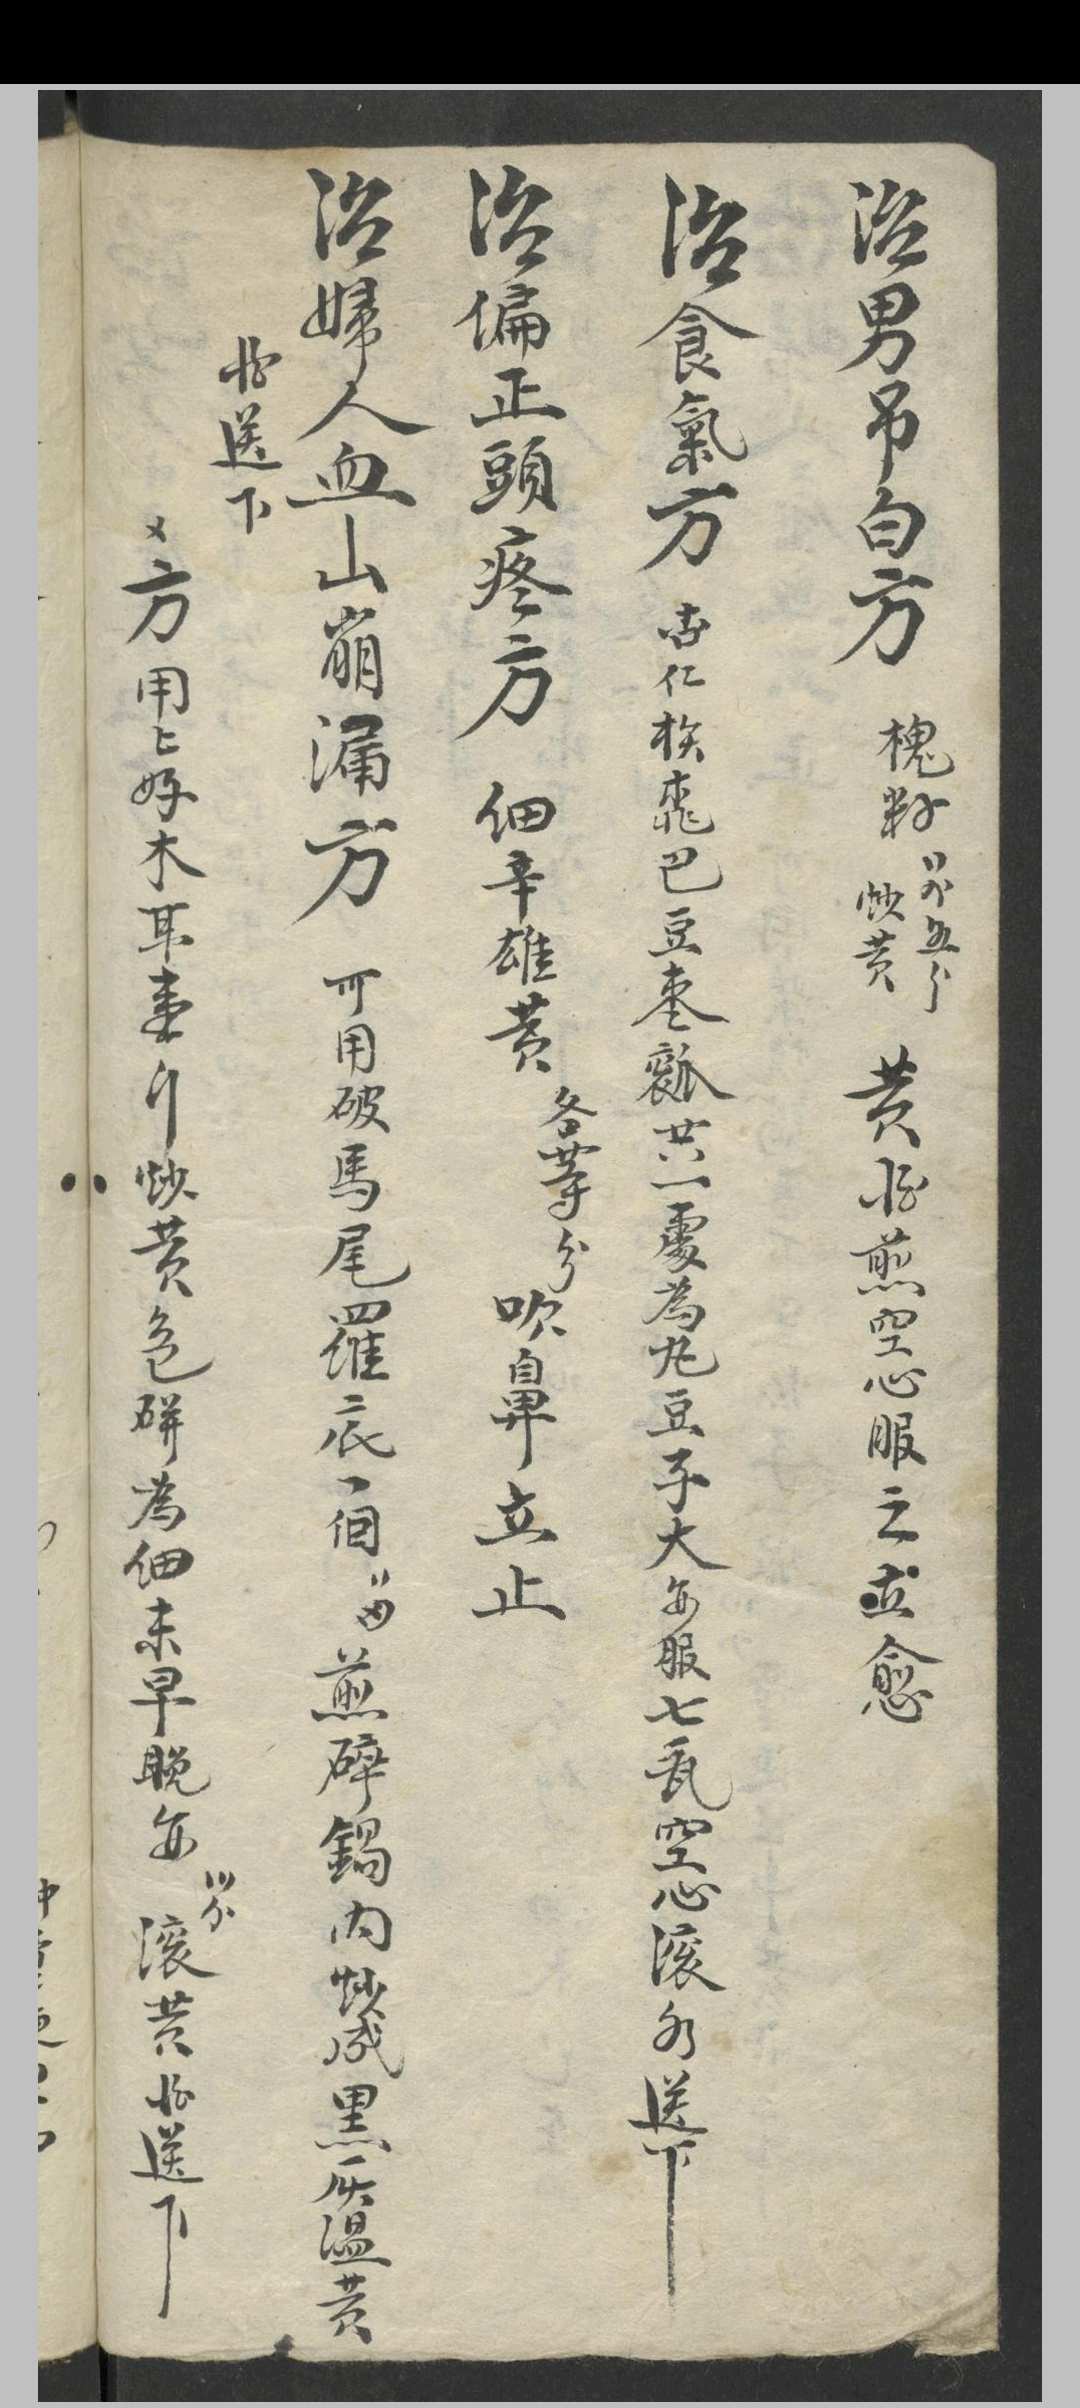 治男吊白方 槐籽 炒黄 黄酒煎空心服之立愈
治食氣方 杏仁核桃巴豆枣瓤共一處為丸豆子大每服七丸空心滚水送下
治偏正頭疼方 细辛雄黄 各等分 吹鼻立止
治婦人血山崩漏方 可用破馬尾羅底一個 煎碎鍋内炒成黑灰温黄
酒送下
又方 用上好木耳壹斤炒黄色研為细末早晚每 滚黄酒送下